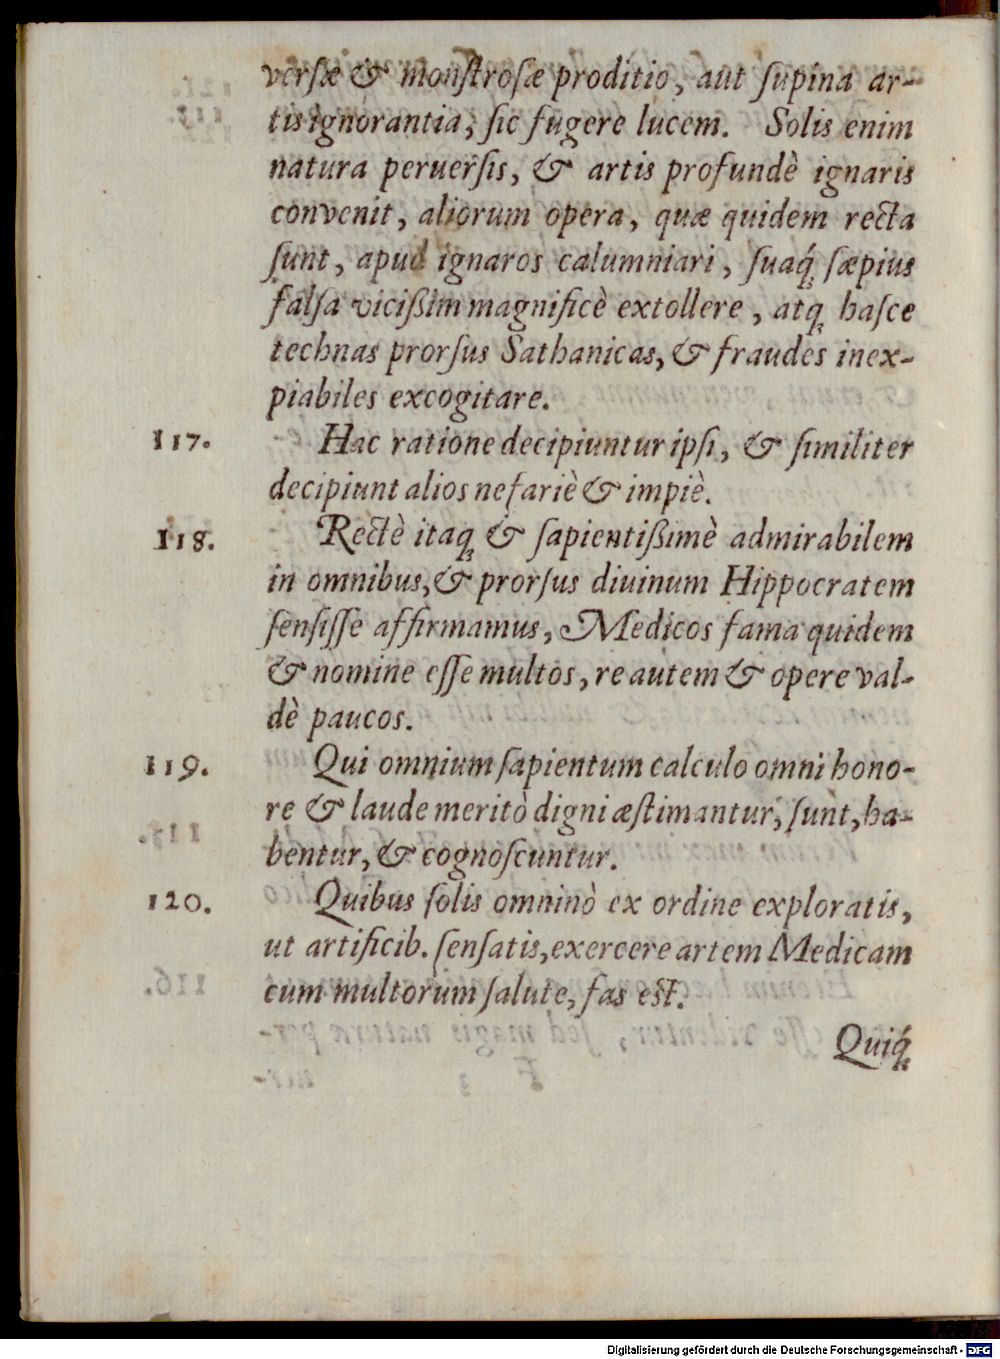 versæ & monſtroſæ proditio, aut ſupina ar-
tis ignorantia, ſic fugere lucem. Solis enim
natura peruerſis, & artis profundè ignaris
convenit, aliorum opera, quæ quidem recta
ſunt, apud ignaros calumniari, ſuaq́; ſæpius
falſa viciſsim magnificè extollere, atq; haſce
technas prorſus Sathanicas, & fraudes inex-
piabiles excogitare.
117. Hac ratione decipiuntur ipſi, & ſimiliter
decipiunt alios nefariè & impiè.
118. Rectè itaq; & ſapientiſsimè admirabilem
in omnibus, & prorſus diuinum Hippocratem
ſenſiſſe affirmamus, Medicos fama quidem
& nomine eſſe multos, re autem & opere val-
dè paucos.
119. Qui omnium ſapientum calculo omni hono-
re & laude meritò digni æſtimantur, ſunt, ha-
bentur, & cognoſcuntur.
120. Quibus ſolis omninò ex ordine exploratis,
ut artificib. ſenſatis, exercere artem Medicam
cum multorum ſalute, fas eſt.
Quiq́;
Digitalisierung gefördert durch die Deutsche Forschungsgemeinschaft - DFG